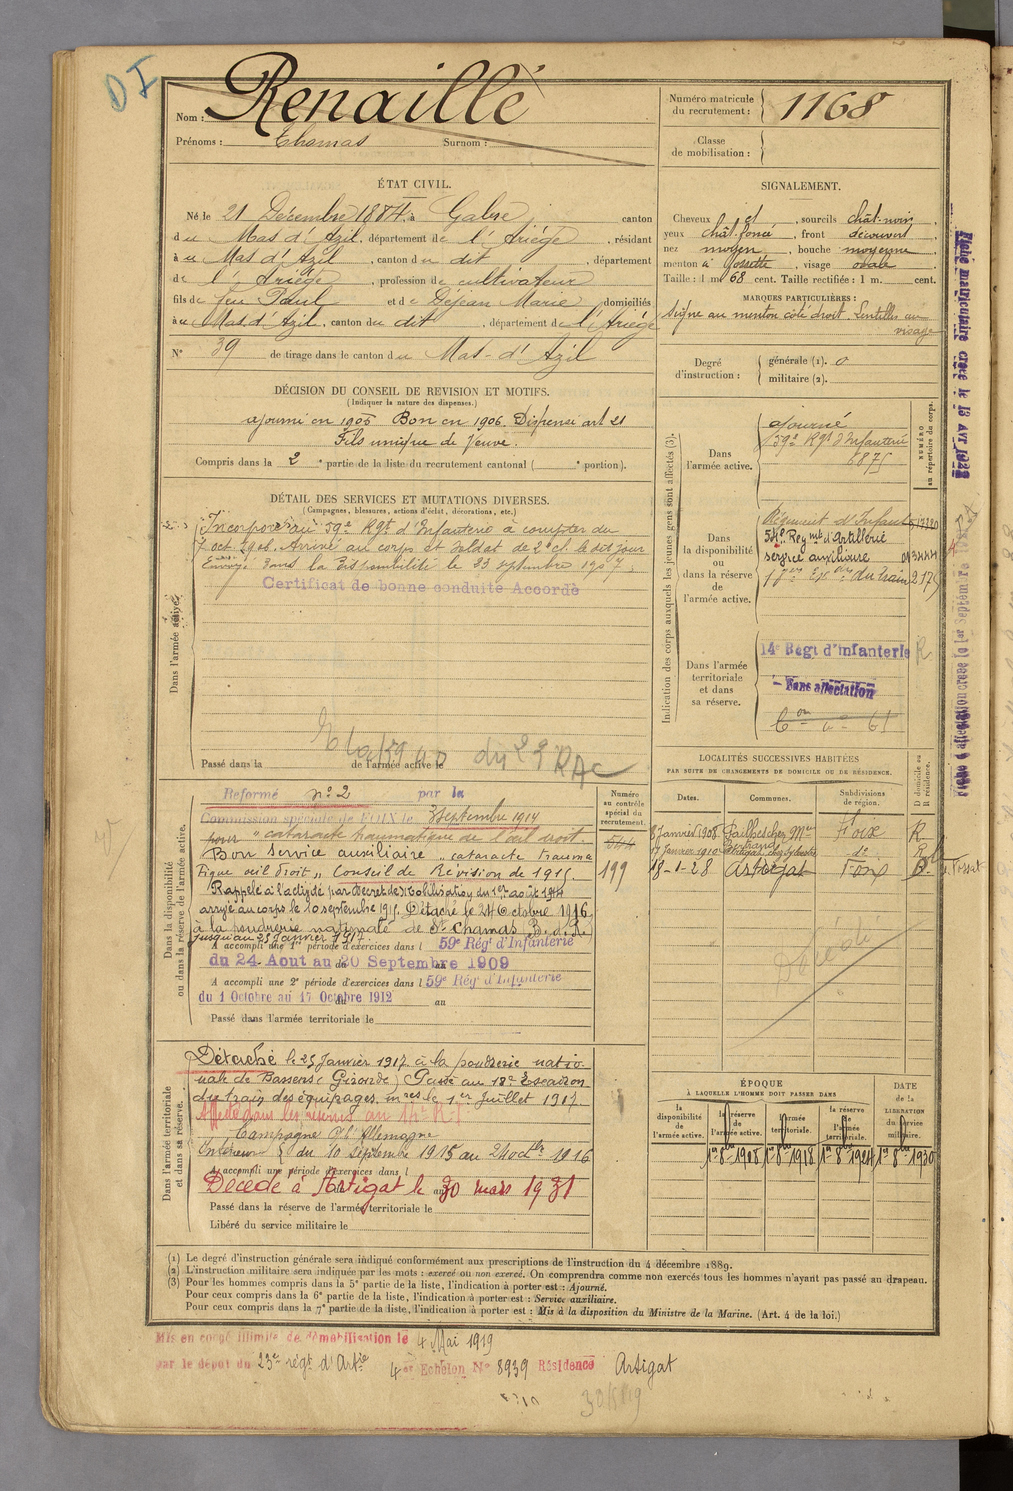 DI
Nom : Renaillé
Prénoms : Thomas Surnom :
Numéro matricule du recrutement : 1168
Classe de mobilisation :
ÉTAT CIVIL.
Né le 21 Décembre 1884, à Gabre canton
du Mas d'Azil, département de l'Ariège, résidant
à u Mas d'Azil, canton du dit, département
de l'Ariège, profession de cultivateur
fils de feu Paul et de Dejean Marie domiciliés
à u Mas d'Azil, canton du dit, département de l'Ariège
N° 39 de tirage dans le canton du Mas-d'Azil
SIGNALEMENT.
Cheveux et, sourcils chât-noirs,
yeux chât. foncé, front découvert,
nez moyen, bouche moyenne,
menton à fossette, visage ovale,
Taille : 1 m. 68 cent. Taille rectifiée : 1 m. cent.
MARQUES PARTICULIÈRES :
Signe au menton côté droit. Lentilles au
visage
Degré d'instruction :
générale (1). 0
militaire (2).
DÉCISION DU CONSEIL DE REVISION ET MOTIFS.
(Indiquer la nature des dispenses.)
ajourné en 1905 Bon en 1906. Dispensé art 21
Fils unique de veuve.
Compris dans la 2e partie de la liste du recrutement cantonal ( e portion).
DÉTAIL DES SERVICES ET MUTATIONS DIVERSES.
(Campagnes, blessures, actions d'éclat, décorations, etc.)
Dans l'armée active.
Incorporé au 59e Rgt d'Infanterie à compter du
7 oct. 1906. Arrivé au corps et soldat de 2e cl. le dit jour
Envoyé dans la disponibilité le 23 septembre 1907.
Certificat de bonne conduite Accordé
du 23 RAC
Passé dans la de l'armée active le
Indication des corps auxquels les jeunes gens sont affectés (3).
NUMÉRO au répertoire du corps.
Dans l'armée active.
ajourné
59e Rgt d'Infanterie
6875
Dans la disponibilité ou dans la réserve de l'armée active.
Régiment d'Infant
Regiment d'Artillerie
service auxiliaire
du train 2175
Dans l'armée territoriale et dans sa réserve.
14e Régt d'infanterie R
Sans affectation
Fiche matriculaire créée le 13 AVR 1922
LOCALITÉS SUCCESSIVES HABITÉES
PAR SUITE DE CHANGEMENTS DE DOMICILE OU DE RÉSIDENCE.
Dates. Communes. Subdivisions de région. D domicile ou R résidence.
8 Janvier 1908 Foix R
17 Janvier 1910 Artigat de R
18-1-28 Artigat Foix D.
Décédé
Dans la disponibilité ou dans la réserve de l'armée active.
Numéro au contrôle spécial du recrutement.
199
Reformé n° 2 par la
Commission spéciale de FOIX le 3 septembre 1914
pour "cataracte traumatique de l'œil droit.
Bon service auxiliaire "cataracte trauma
tique œil droit" Conseil de Révision de 1915.
Rappelé à l'activité par Décret de Mobilisation du 1er août 1914
arrivé au corps le 10 septembre 1915. Détaché le 24 Octobre 1916
à la poudrerie nationale de St Chamas B. d. R.
jusqu'au 25 Janvier 1917
A accompli une 1re période d'exercices dans l 59e Rég' d'Infanterie
du 24 Aout au 20 Septembre 1909
A accompli une 2e période d'exercices dans l 59e Rég' d'Infanterie
du 1 Octobre au 17 Octobre 1912 au
Passé dans l'armée territoriale le
Dans l'armée territoriale et dans sa réserve.
Détaché le 25 Janvier 1917 à la poudrerie natio-
nale de Bassens (Gironde) Passé au 18e Escadron
du train des équipages mres le 1er Juillet 1917.
Affecté dans les réserves au 14e R.I
Campagne c. l'Allemagne
Intérieur du 10 septembre 1915 au 24 octbre 1916
A accompli une période d'exercices dans l
Décédé à Artigat le 30 mars 1931
Passé dans la réserve de l'armée territoriale le
Libéré du service militaire le
ÉPOQUE
À LAQUELLE L'HOMME DOIT PASSER DANS
la disponibilité de l'armée active. la réserve de l'armée active. l'armée territoriale. la réserve de l'armée territoriale.
DATE de la LIBÉRATION du service militaire.
1er 8bre 1908 1er 8bre 1918 1er 8bre 1924 1er 8bre 1930
(1) Le degré d'instruction générale sera indiqué conformément aux prescriptions de l'instruction du 4 décembre 1889.
(2) L'instruction militaire sera indiquée par les mots : exercé ou non exercé. On comprendra comme non exercés tous les hommes n'ayant pas passé au drapeau.
(3) Pour les hommes compris dans la 5e partie de la liste, l'indication à porter est : Ajourné.
Pour ceux compris dans la 6e partie de la liste, l'indication à porter est : Service auxiliaire.
Pour ceux compris dans la 7e partie de la liste, l'indication à porter est : Mis à la disposition du Ministre de la Marine. (Art. 4 de la loi.)
Mis en congé illimité de démobilisation le 4 Mai 1919
par le dépot du 23e régt d'Artie 4e Echelon N° 8939 Résidence Artigat